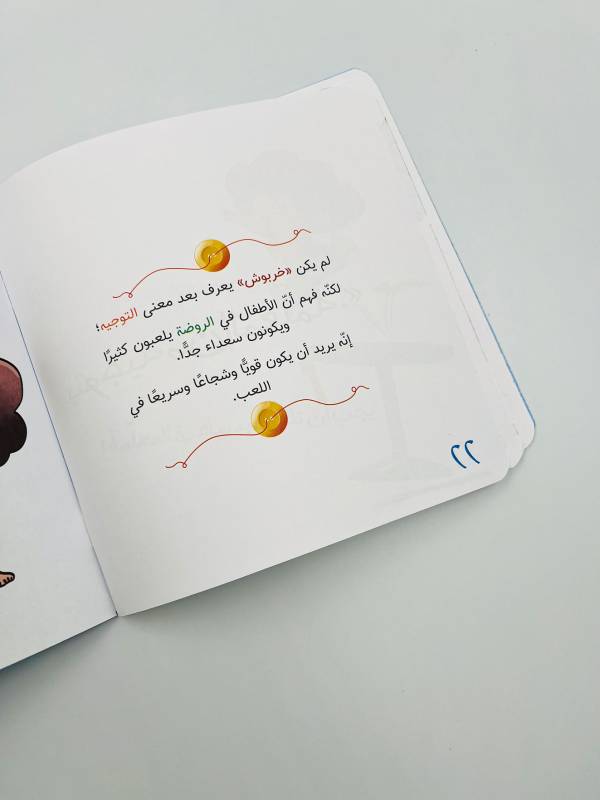 لم يكن «خربوش» يعرف بعد معنى التوجيه؛
لكنّه فهم أنّ الأطفال في الروضة يلعبون كثيرًا
ويكونون سعداء جدًّا.
إنّه يريد أن يكون قويًّا وشجاعًا وسريعًا في
اللعب.
٢٢